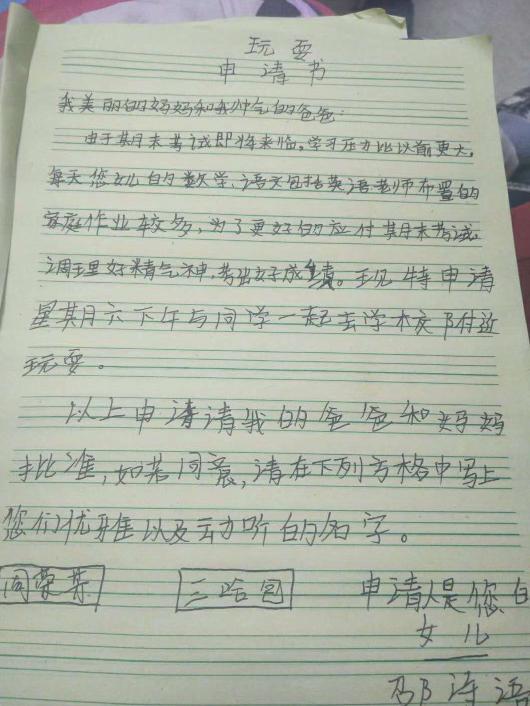 玩耍
申请书
我美丽的妈妈和我帅气的爸爸：
由于期末考试即将来临，学习压力比以前更大，
每天您女儿的数学、语文包括英语老师布置的
家庭作业较多，为了更好的应付期末考试，
调理好精气神，考出好成绩。现特申请
星期六下午与同学一起去学校附近
玩耍。
以上申请请我的爸爸和妈妈
批准，如若同意，请在下列方格中写上
您们优雅以及动听的名字。
申请人是您的
女儿
邵诗语